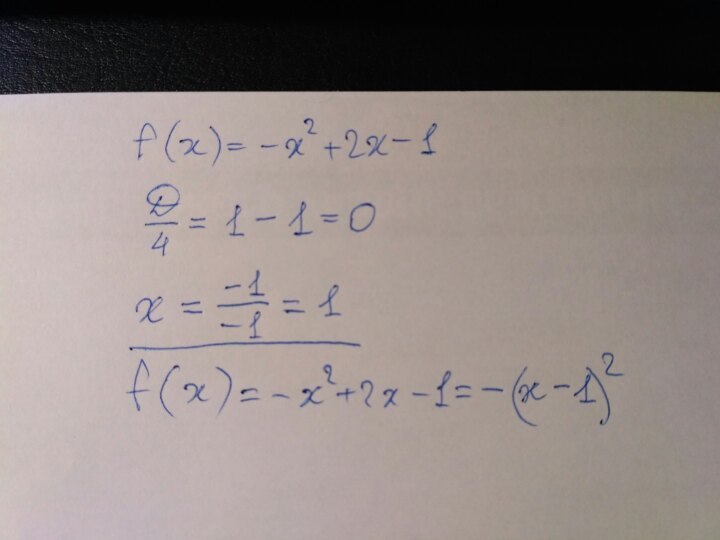 f(x) = -x² + 2x - 1
D/4 = 1 - 1 = 0
x = -1/-1 = 1
f(x) = -x² + 2x - 1 = -(x - 1)²